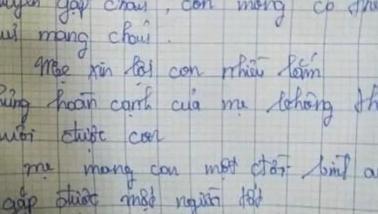 gặp cháu, con mong có
mang cháu.
Mẹ xin lỗi con nhiều lắm
hoàn cảnh của mẹ không
được con
mẹ mong con một đời bình a
gặp được một người tốt